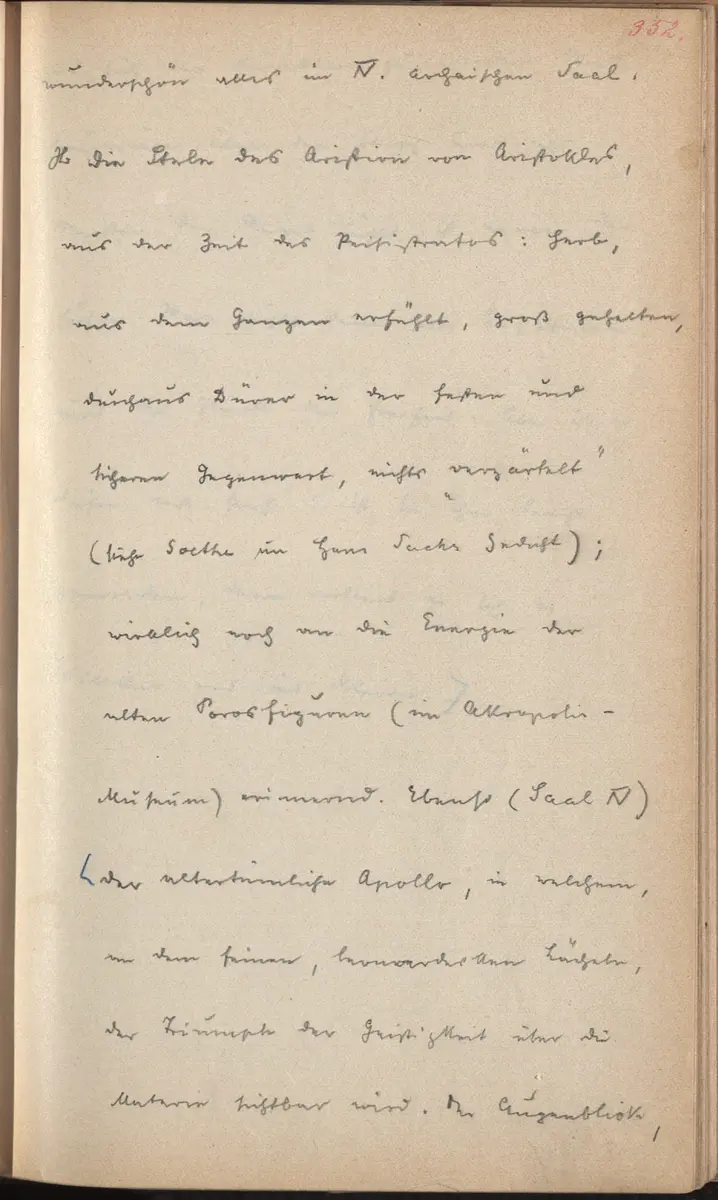 352.
wunderschön alles im IV. archaischen Saal.
So die Stele des Aristion von Aristokles,
aus der Zeit des Peisistratos: herb,
aus dem Ganzen erfühlt, groß gehalten,
durchaus Dürer in der festen und
sicheren Gegenwart, nichts verzärtelt"
(siehe Goethe im "Hans Sachs Gedicht);
wirklich noch an die Energie der
alten Porosfiguren (im Akropolis-
Museum) erinnernd. Ebenso (Saal IV)
der altertümliche Apollo, in welchem,
in dem feinen, leonardesken Lächeln,
der Triumph der Geistigkeit über die
Materie sichtbar wird. Der Augenblick,